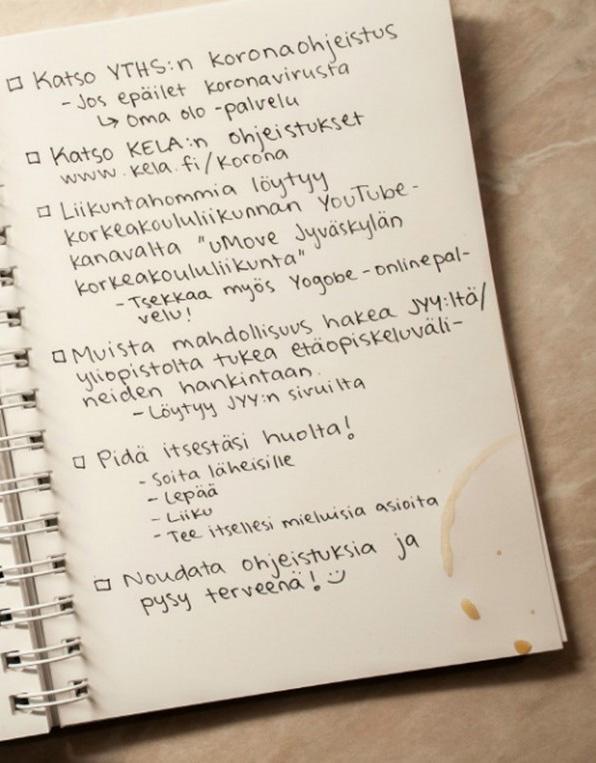 □ Katso YTHS:n koronaohjeistus
- Jos epäilet koronavirusta
↳ Oma olo -palvelu
□ Katso KELA:n ohjeistukset
www.kela.fi/korona
□ Liikuntahommia löytyy
korkeakoululiikunnan YouTube-
kanavalta "uMove Jyväskylän
korkeakoululiikunta"
- Tsekkaa myös Yogobe-onlinepal-
velu!
□ Muista mahdollisuus hakea JYY:ltä/
yliopistolta tukea etäopiskeluväli-
neiden hankintaan.
- Löytyy JYY:n sivuilta
□ Pidä itsestäsi huolta!
- Soita läheisille
- Lepää
- Liiku
- Tee itsellesi mieluisia asioita
□ Noudata ohjeistuksia ja
pysy terveenä! :)